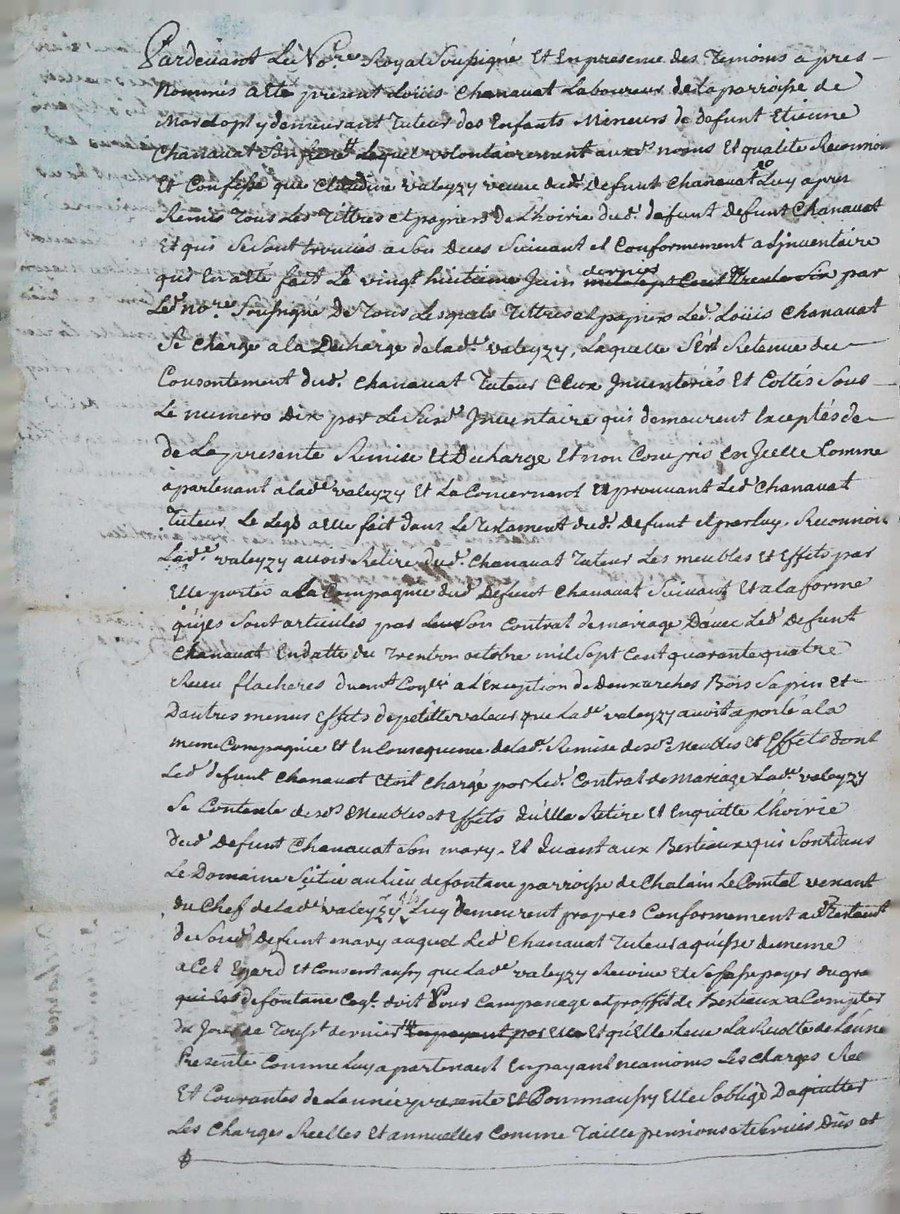 Pardevant Le No.re Royal Soussigné Et En presence des Temoins apres
Nommés a Eté present Louis Chanavat Laboureur de La parroisse de
y demeurant Tuteur des Enfants Mineurs de defunt Etienne
Chanavat Lequel volontairement auxds noms Et qualité Reconnoi
Et Confesse que Claudine valeyzy veuve dud. Defunt Chanavat Luy a
Remis Tous Les Tittres et papiers de L'hoirie dud. defunt Defunt Chanavat
Et qui Se Sont trouvés Suivant et Conformement a L'jnventaire
qui En a Eté fait Le vingt huitieme Juin dernier mil sept Cent Trente Six par
Led. no.re Soussigné De Tous Lesquels Tittres et papiers Led. Loüis Chanavat
Se Charge a La Decharge de Lad.e valeyzy, Laquelle S'est Retenue du
Consentement dud. Chanavat Tuteur Ceux Jnventeriés Et Cottés Sous
Le numero Dix par Le Susd. Jnventaire qui demeurent Exceptés de
de La presente Remise Et Decharge Et non Compris En Jcelle Comme
apartenant a Lad.e valeyzy Et La Concernant Led. Chanavat
Tuteur, Le Legs a Elle fait dans Le Testament dud. Defunt et par Luy. Reconnoi
Lad.e valeyzy avoir Retiré dud. Chanavat Tuteur Les meubles Et Effets par
Elle portés a La Compagnie dud. Defunt Chanavat Suivant Et a La forme
qu'jls Sont articulés par Son Contrat de mariage D'avec Led. Defunt
Chanavat En datte du Trente un octobre mil Sept Cent quarante quatre
Reçu flacheres a L'Exception de Deux arches Bois Sapin Et
D'autres menus Effets de petitte valeur que Lad.e valeyzy avoit aporté a La
meme Compagnie Et En Consequence de Lad.e Remise de sd.s Meubles Et Effets dont
Led. defunt Chanavat Etoit Chargé par Led. Contrat de Mariage Lad.e valeyzy
Se Contente de sd.s Meubles et Effets qu'Elle Retire Et En quitte L'hoirie
dud. Defunt Chanavat Son mary. Et Quant aux Bestiaux qui Sont dans
Le Domaine Scitué au Lieu de fontane parroisse de Chalain Le Comtal venant
du Chef de Lad.e valeyzy jls Luy demeurent propres Conformement au Testament
de Soud. Defunt mary auquel Led. Chanavat Tuteur aquiesse de meme
a Cet Egard Et Consent aussy que Lad.e valeyzy Recoive Et Se fasse payer du
de fontane doit Pour Campanage et proffit de Bestiaux a Compter
du Jour de Touss.t dernier En payant par Elle Et qu'Elle Leve La Recolte de L'année
Presente Comme Luy apartenant En payant neamoins Les Charges
Et Courantes de L'année presente Et Comm'aussy Elle S'oblige D'aquitter
Les Charges Reelles Et annuelles Comme Taille pensions et Servis Dûs et